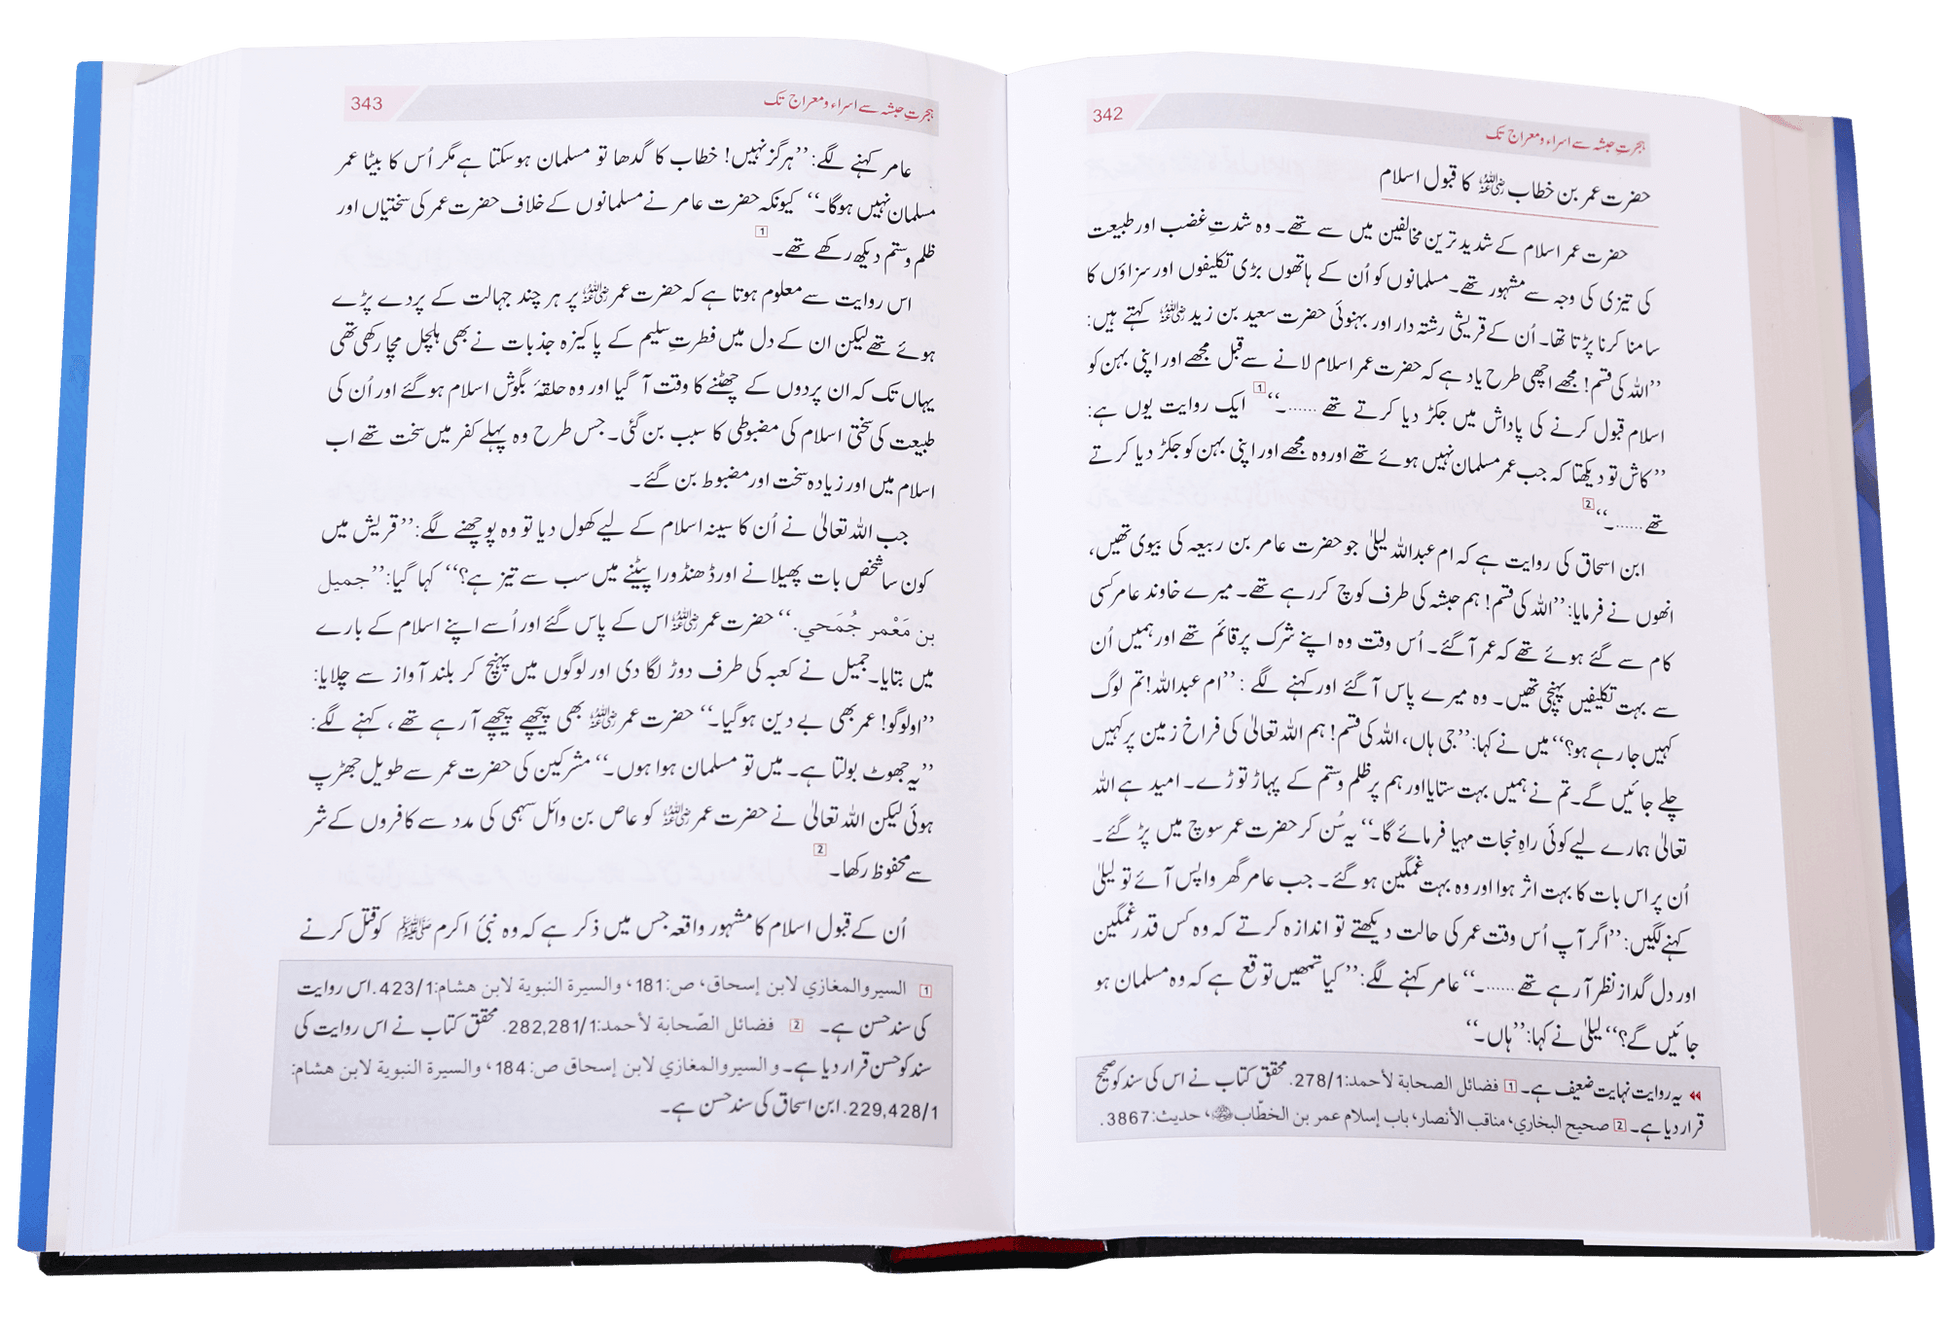 342
ہجرتِ حبشہ سے اسراء و معراج تک
حضرت عمر بن خطاب رضی اللہ عنہ کا قبول اسلام
حضرت عمر اسلام کے شدید ترین مخالفین میں سے تھے۔ وہ شدتِ غضب اور طبیعت
کی تیزی کی وجہ سے مشہور تھے۔ مسلمانوں کو اُن کے ہاتھوں بڑی تکلیفوں اور سزاؤں کا
سامنا کرنا پڑتا تھا۔ اُن کے قریشی رشتہ دار اور بہنوئی حضرت سعید بن زید رضی اللہ عنہ کہتے ہیں:
’’اللہ کی قسم! مجھے اچھی طرح یاد ہے کہ حضرت عمر اسلام لانے سے قبل مجھے اور اپنی بہن کو
اسلام قبول کرنے کی پاداش میں جکڑ دیا کرتے تھے ......۔‘‘ 1 ایک روایت یوں ہے:
’’کاش تو دیکھتا کہ جب عمر مسلمان نہیں ہوئے تھے اور وہ مجھے اور اپنی بہن کو جکڑ دیا کرتے
تھے ......۔‘‘ 2
ابن اسحاق کی روایت ہے کہ ام عبداللہ لیلیٰ جو حضرت عامر بن ربیعہ کی بیوی تھیں،
انھوں نے فرمایا: ’’اللہ کی قسم! ہم حبشہ کی طرف کوچ کر رہے تھے۔ میرے خاوند عامر کسی
کام سے گئے ہوئے تھے کہ عمر آ گئے۔ اُس وقت وہ اپنے شرک پر قائم تھے اور ہمیں اُن
سے بہت تکلیفیں پہنچی تھیں۔ وہ میرے پاس آ گئے اور کہنے لگے : ’’ام عبداللہ! تم لوگ
کہیں جا رہے ہو؟‘‘ میں نے کہا: ’’جی ہاں، اللہ کی قسم! ہم اللہ تعالیٰ کی فراخ زمین پر کہیں
چلے جائیں گے۔ تم نے ہمیں بہت ستایا اور ہم پر ظلم و ستم کے پہاڑ توڑے۔ امید ہے اللہ
تعالیٰ ہمارے لیے کوئی راہِ نجات مہیا فرمائے گا۔‘‘ یہ سُن کر حضرت عمر سوچ میں پڑ گئے۔
اُن پر اس بات کا بہت اثر ہوا اور وہ بہت غمگین ہو گئے۔ جب عامر گھر واپس آئے تو لیلیٰ
کہنے لگیں: ’’اگر آپ اُس وقت عمر کی حالت دیکھتے تو اندازہ کرتے کہ وہ کس قدر غمگین
اور دل گداز نظر آ رہے تھے ......۔‘‘ عامر کہنے لگے: ’’کیا تمھیں توقع ہے کہ وہ مسلمان ہو
جائیں گے؟‘‘ لیلیٰ نے کہا: ’’ہاں۔‘‘
یہ روایت نہایت ضعیف ہے۔ 1 فضائل الصحابة لأحمد: 278/1. محقق کتاب نے اس کی سند کو صحیح
قرار دیا ہے۔ 2 صحيح البخاري، مناقب الأنصار، باب إسلام عمر بن الخطّاب رضی اللہ عنہ، حديث: 3867.
343
ہجرتِ حبشہ سے اسراء و معراج تک
عامر کہنے لگے: ’’ہرگز نہیں! خطاب کا گدھا تو مسلمان ہو سکتا ہے مگر اُس کا بیٹا عمر
مسلمان نہیں ہوگا۔‘‘ کیونکہ حضرت عامر نے مسلمانوں کے خلاف حضرت عمر کی سختیاں اور
ظلم و ستم دیکھ رکھے تھے۔ 1
اس روایت سے معلوم ہوتا ہے کہ حضرت عمر رضی اللہ عنہ پر ہر چند جہالت کے پردے پڑے
ہوئے تھے لیکن ان کے دل میں فطرتِ سلیم کے پاکیزہ جذبات نے بھی ہلچل مچا رکھی تھی
یہاں تک کہ ان پردوں کے چھٹنے کا وقت آ گیا اور وہ حلقۂ بگوش اسلام ہو گئے اور اُن کی
طبیعت کی سختی اسلام کی مضبوطی کا سبب بن گئی۔ جس طرح وہ پہلے کفر میں سخت تھے اب
اسلام میں اور زیادہ سخت اور مضبوط بن گئے۔
جب اللہ تعالیٰ نے اُن کا سینہ اسلام کے لیے کھول دیا تو وہ پوچھنے لگے: ’’قریش میں
کون سا شخص بات پھیلانے اور ڈھنڈورا پیٹنے میں سب سے تیز ہے؟‘‘ کہا گیا: ’’جميل
بن مَعْمر جُمَحي.‘‘ حضرت عمر رضی اللہ عنہ اس کے پاس گئے اور اُسے اپنے اسلام کے بارے
میں بتایا۔ جمیل نے کعبہ کی طرف دوڑ لگا دی اور لوگوں میں پہنچ کر بلند آواز سے چلایا:
’’او لوگو! عمر بھی بے دین ہو گیا۔‘‘ حضرت عمر رضی اللہ عنہ بھی پیچھے پیچھے آ رہے تھے ، کہنے لگے:
’’یہ جھوٹ بولتا ہے۔ میں تو مسلمان ہوا ہوں۔‘‘ مشرکین کی حضرت عمر سے طویل جھڑپ
ہوئی لیکن اللہ تعالیٰ نے حضرت عمر رضی اللہ عنہ کو عاص بن وائل سہمی کی مدد سے کافروں کے شر
سے محفوظ رکھا۔ 2
اُن کے قبول اسلام کا مشہور واقعہ جس میں ذکر ہے کہ وہ نبیٔ اکرم ﷺ کو قتل کرنے
1 السير والمغازي لابن إسحاق، ص: 181، والسيرة النبوية لابن هشام: 423/1. اس روایت
کی سند حسن ہے۔ 2 فضائل الصّحابة لأحمد: 282,281/1. محقق کتاب نے اس روایت کی
سند کو حسن قرار دیا ہے۔ و السير والمغازي لابن إسحاق ص: 184، والسيرة النبوية لابن هشام:
229,428/1. ابن اسحاق کی سند حسن ہے۔